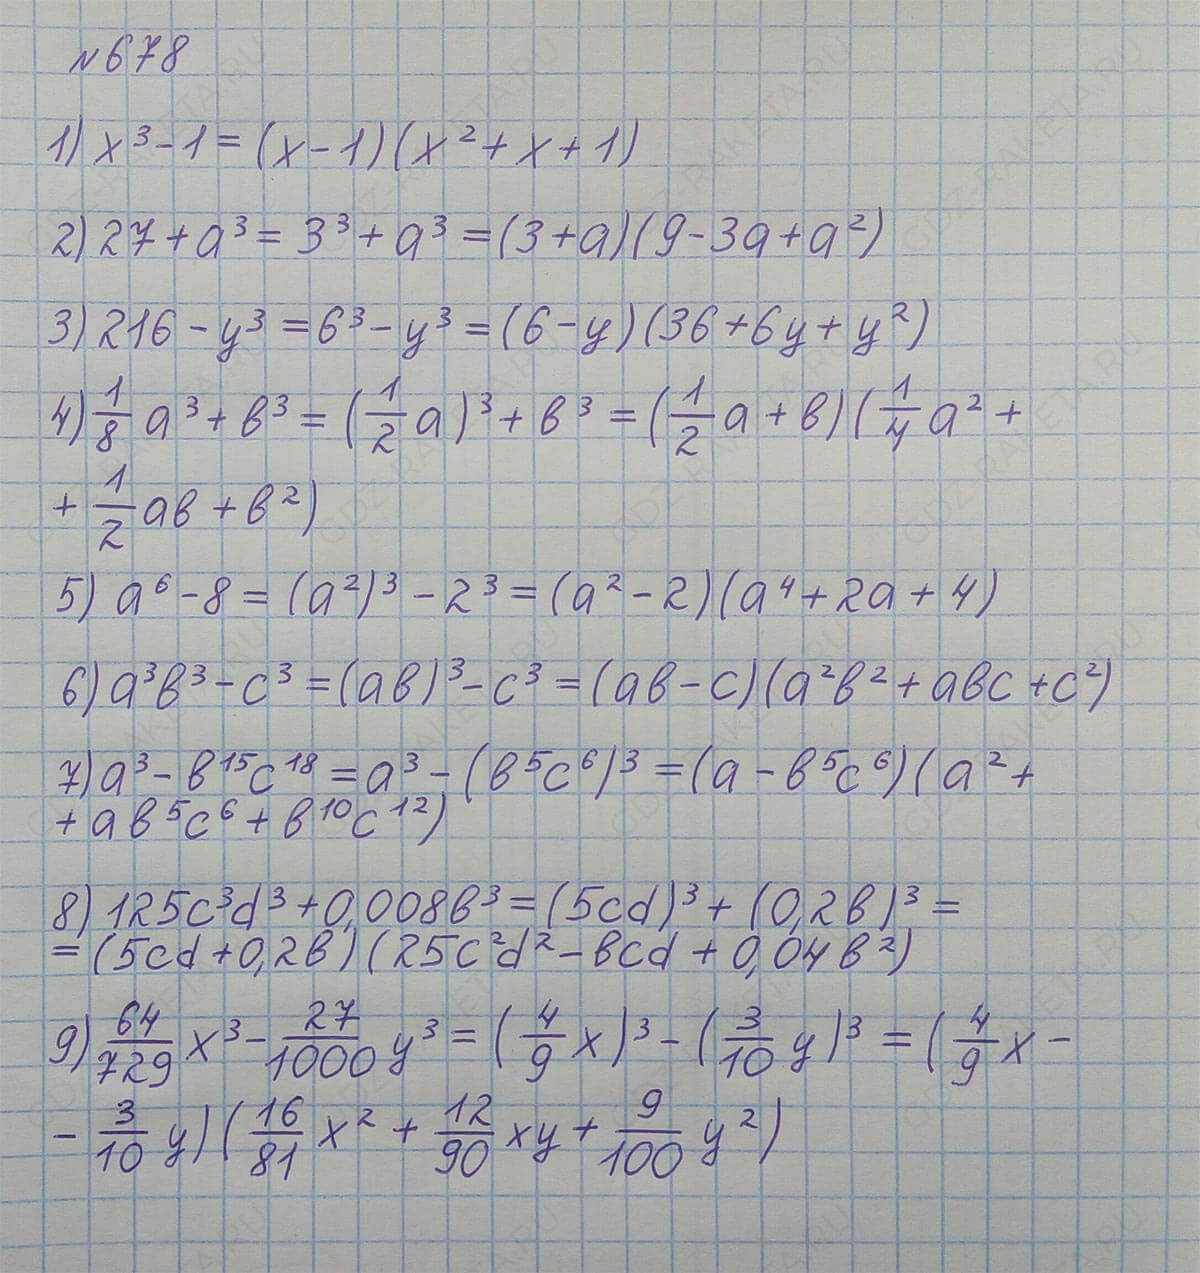 №678
1) x³-1=(x-1)(x²+x+1)
2) 27+a³=3³+a³=(3+a)(9-3a+a²)
3) 216-y³=6³-y³=(6-y)(36+6y+y²)
4) 1/8 a³+в³=(1/2 a)³+в³=(1/2 a+в)(1/4 a²+
+1/2 aв+в²)
5) a⁶-8=(a²)³-2³=(a²-2)(a⁴+2a+4)
6) a³в³-c³=(aв)³-c³=(aв-c)(a²в²+aвc+c²)
7) a³-в¹⁵c¹⁸=a³-(в⁵c⁶)³=(a-в⁵c⁶)(a²+
+aв⁵c⁶+в¹⁰c¹²)
8) 125c³d³+0,008в³=(5cd)³+(0,2в)³=
=(5cd+0,2в)(25c²d²-вcd+0,04в²)
9) 64/729 x³-27/1000 y³=(4/9 x)³-(3/10 y)³=(4/9 x-
-3/10 y)(16/81 x²+12/90 xy+9/100 y²)
GDZ-RAKETA.RU